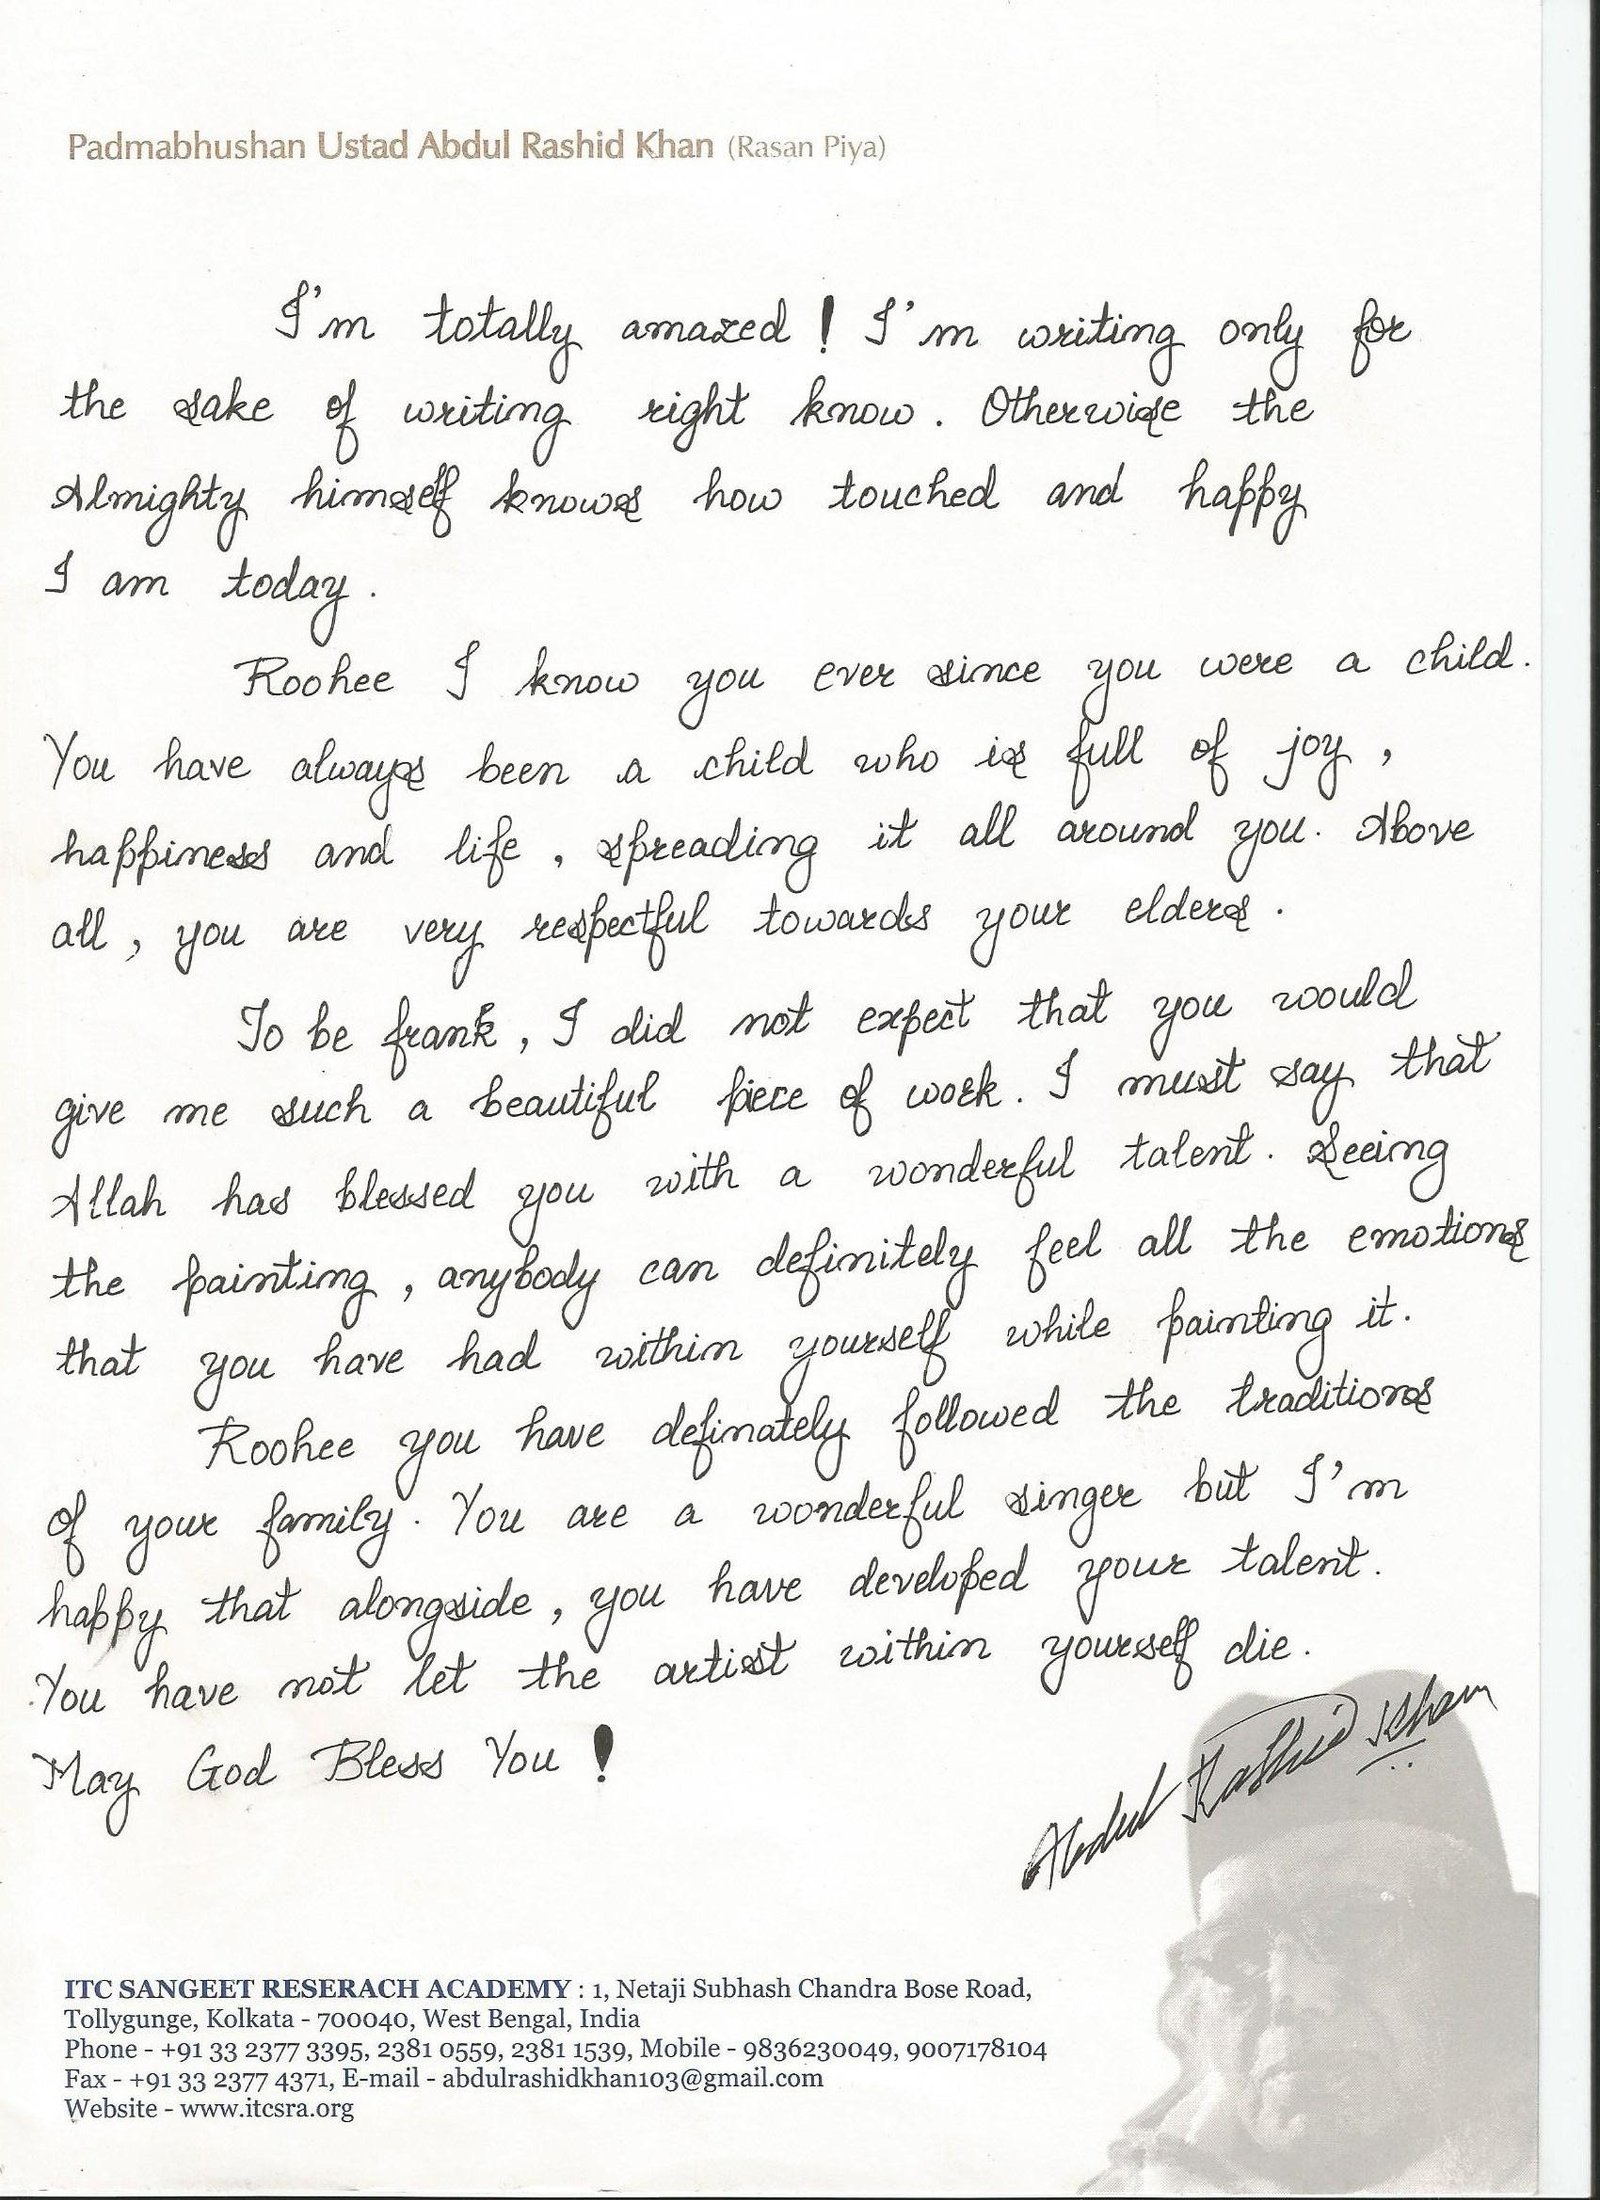 Padmabhushan Ustad Abdul Rashid Khan (Rasan Piya)
I'm totally amazed! I'm writing only for
the sake of writing right know. Otherwise the
Almighty himself knows how touched and happy
I am today.
Roohee I know you ever since you were a child.
You have always been a child who is full of joy,
happiness and life, spreading it all around you. Above
all, you are very respectful towards your elders.
To be frank, I did not expect that you would
give me such a beautiful piece of work. I must say that
Allah has blessed you with a wonderful talent. Seeing
the painting, anybody can definitely feel all the emotions
that you have had within yourself while painting it.
Roohee you have definately followed the traditions
of your family. You are a wonderful singer but I'm
happy that alongside, you have developed your talent.
You have not let the artist within yourself die.
May God Bless You!
Abdul Rashid Khan
ITC SANGEET RESERACH ACADEMY : 1, Netaji Subhash Chandra Bose Road,
Tollygunge, Kolkata - 700040, West Bengal, India
Phone - +91 33 2377 3395, 2381 0559, 2381 1539, Mobile - 9836230049, 9007178104
Fax - +91 33 2377 4371, E-mail - abdulrashidkhan103@gmail.com
Website - www.itcsra.org